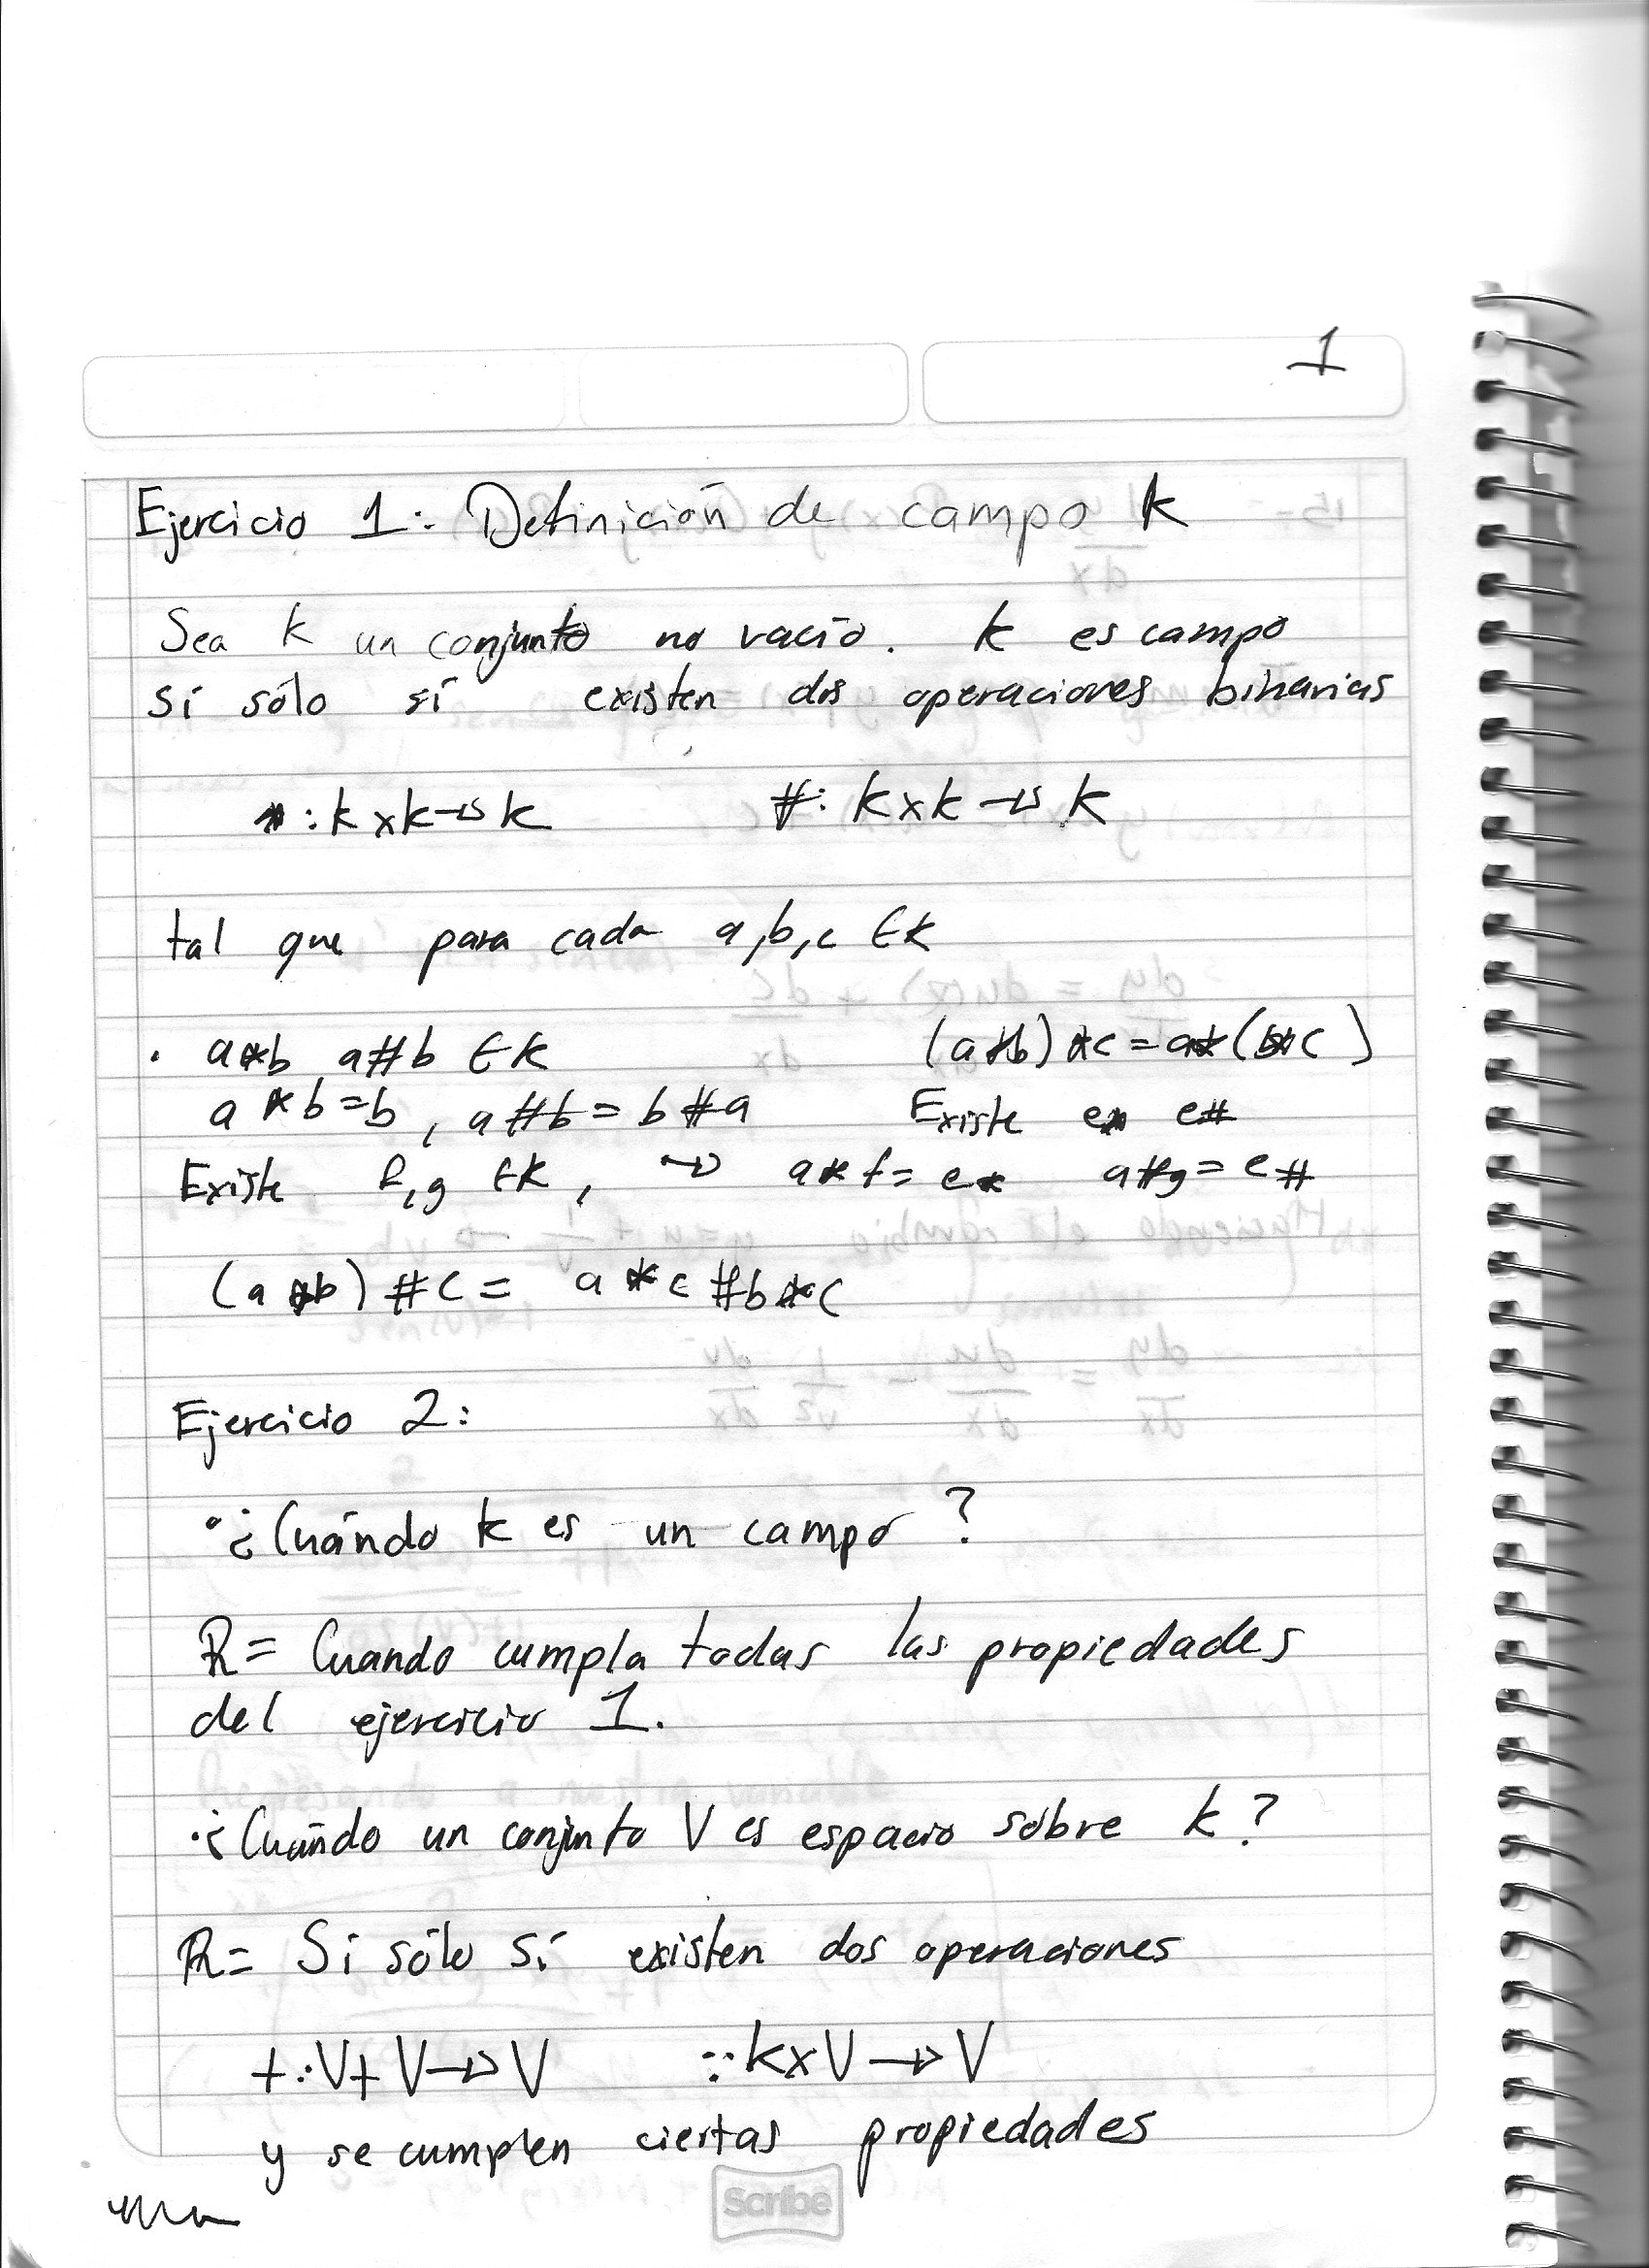 1
Ejercicio 1: Definición de campo k
Sea k un conjunto no vacío. k es campo
sí sólo sí existen dos operaciones binarias
*: k x k → k #: k x k → k
tal que para cada a, b, c ∈ k
· a*b a#b ∈ k (a*b)*c = a*(b*c)
a*b=b, a#b = b#a Existe e* e#
Existe f,g ∈ k, → a*f = e* a#g = e#
(a*b)#c = a*c#b*c
Ejercicio 2:
· ¿Cuándo k es un campo?
R= Cuando cumpla todas las propiedades
del ejercicio 1.
· ¿Cuándo un conjunto V es espacio sobre k?
R= Sí sólo sí existen dos operaciones
+: V+V → V ·: k x V → V
y se cumplen ciertas propiedades
Scribe